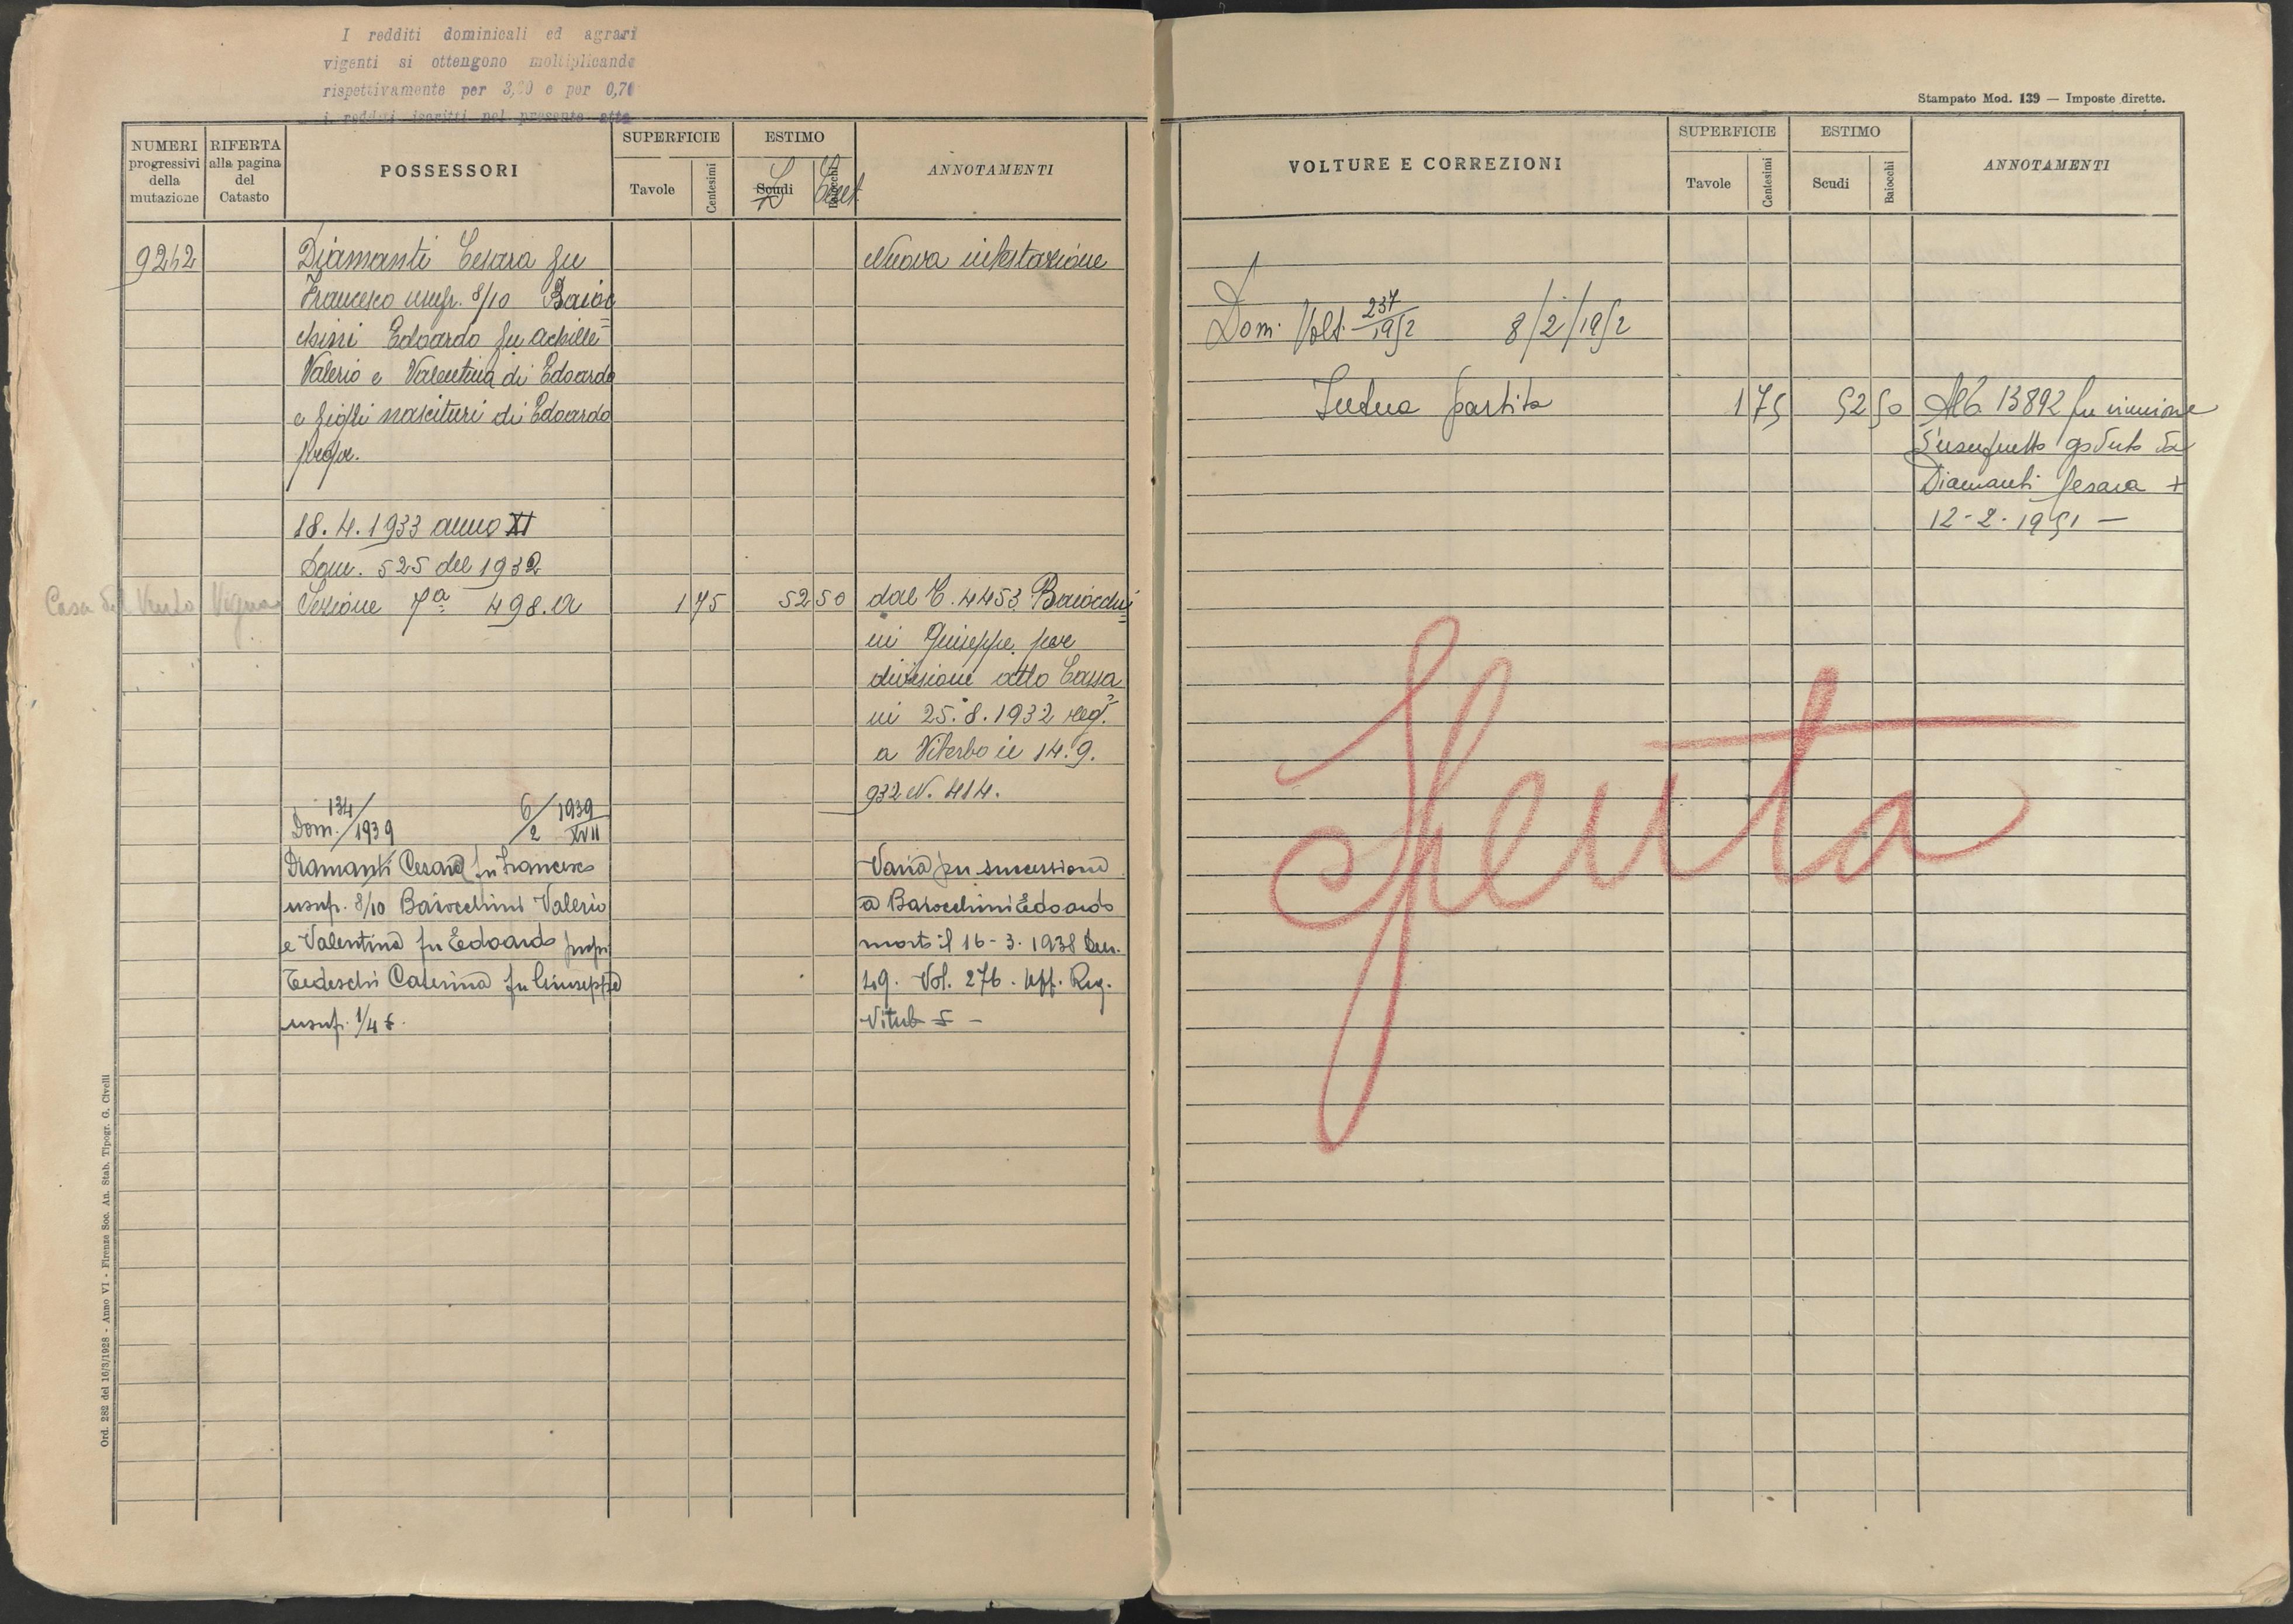 I redditi dominicali ed agrari
vigenti si ottengono moltiplicando
rispettivamente per 3,20 e per 0,70
i redditi iscritti nel presente atto
NUMERI progressivi della mutazione
RIFERTA alla pagina del Catasto
POSSESSORI
SUPERFICIE
Tavole
Centesimi
ESTIMO
Scudi
Baiocchi
L
Cent
ANNOTAMENTI
9242
Diamanti Cesara fu
Nuova intestazione
Francesco usufr. 8/10 Baioc
chini Edoardo fu Achille
Valerio e Valentina di Edoardo
e figli nascituri di Edoardo
propr.
18.4.1933 anno XI
Dom. 525 del 1932
Casa del Vento Vigna
Sezione 7ª 498.a 1 75 52 50 dal C. 4453 Baiocchi
ni Giuseppe per
divisione atto Cassa
ni 25.8.1932 reg.
a Viterbo il 14.9.
932 N. 414.
Dom. 134/1939 6/2 1939 XVII
Diamanti Cesara fu Francesco
Varia per successione
usuf. 8/10 Baiocchini Valerio
a Baiocchini Edoardo
e Valentina fu Edoardo propr
morto il 16-3-1938 Den.
Tedeschi Caterina fu Giuseppe
49. Vol. 276. Uff. Reg.
usuf. 1/4
Viterb
Ord. 282 del 16/3/1928 - Anno VI - Firenze Soc. An. Stab. Tipogr. G. Civelli
Stampato Mod. 139 — Imposte dirette.
VOLTURE E CORREZIONI
SUPERFICIE
Tavole
Centesimi
ESTIMO
Scudi
Baiocchi
ANNOTAMENTI
Dom. Volt. 237/1952 8/2/1952
Intua partita 1 75 52 50 Al C. 13892 per riunione
d'usufrutto goduto da
Diamanti Cesara +
12-2-1951 —
Spenta